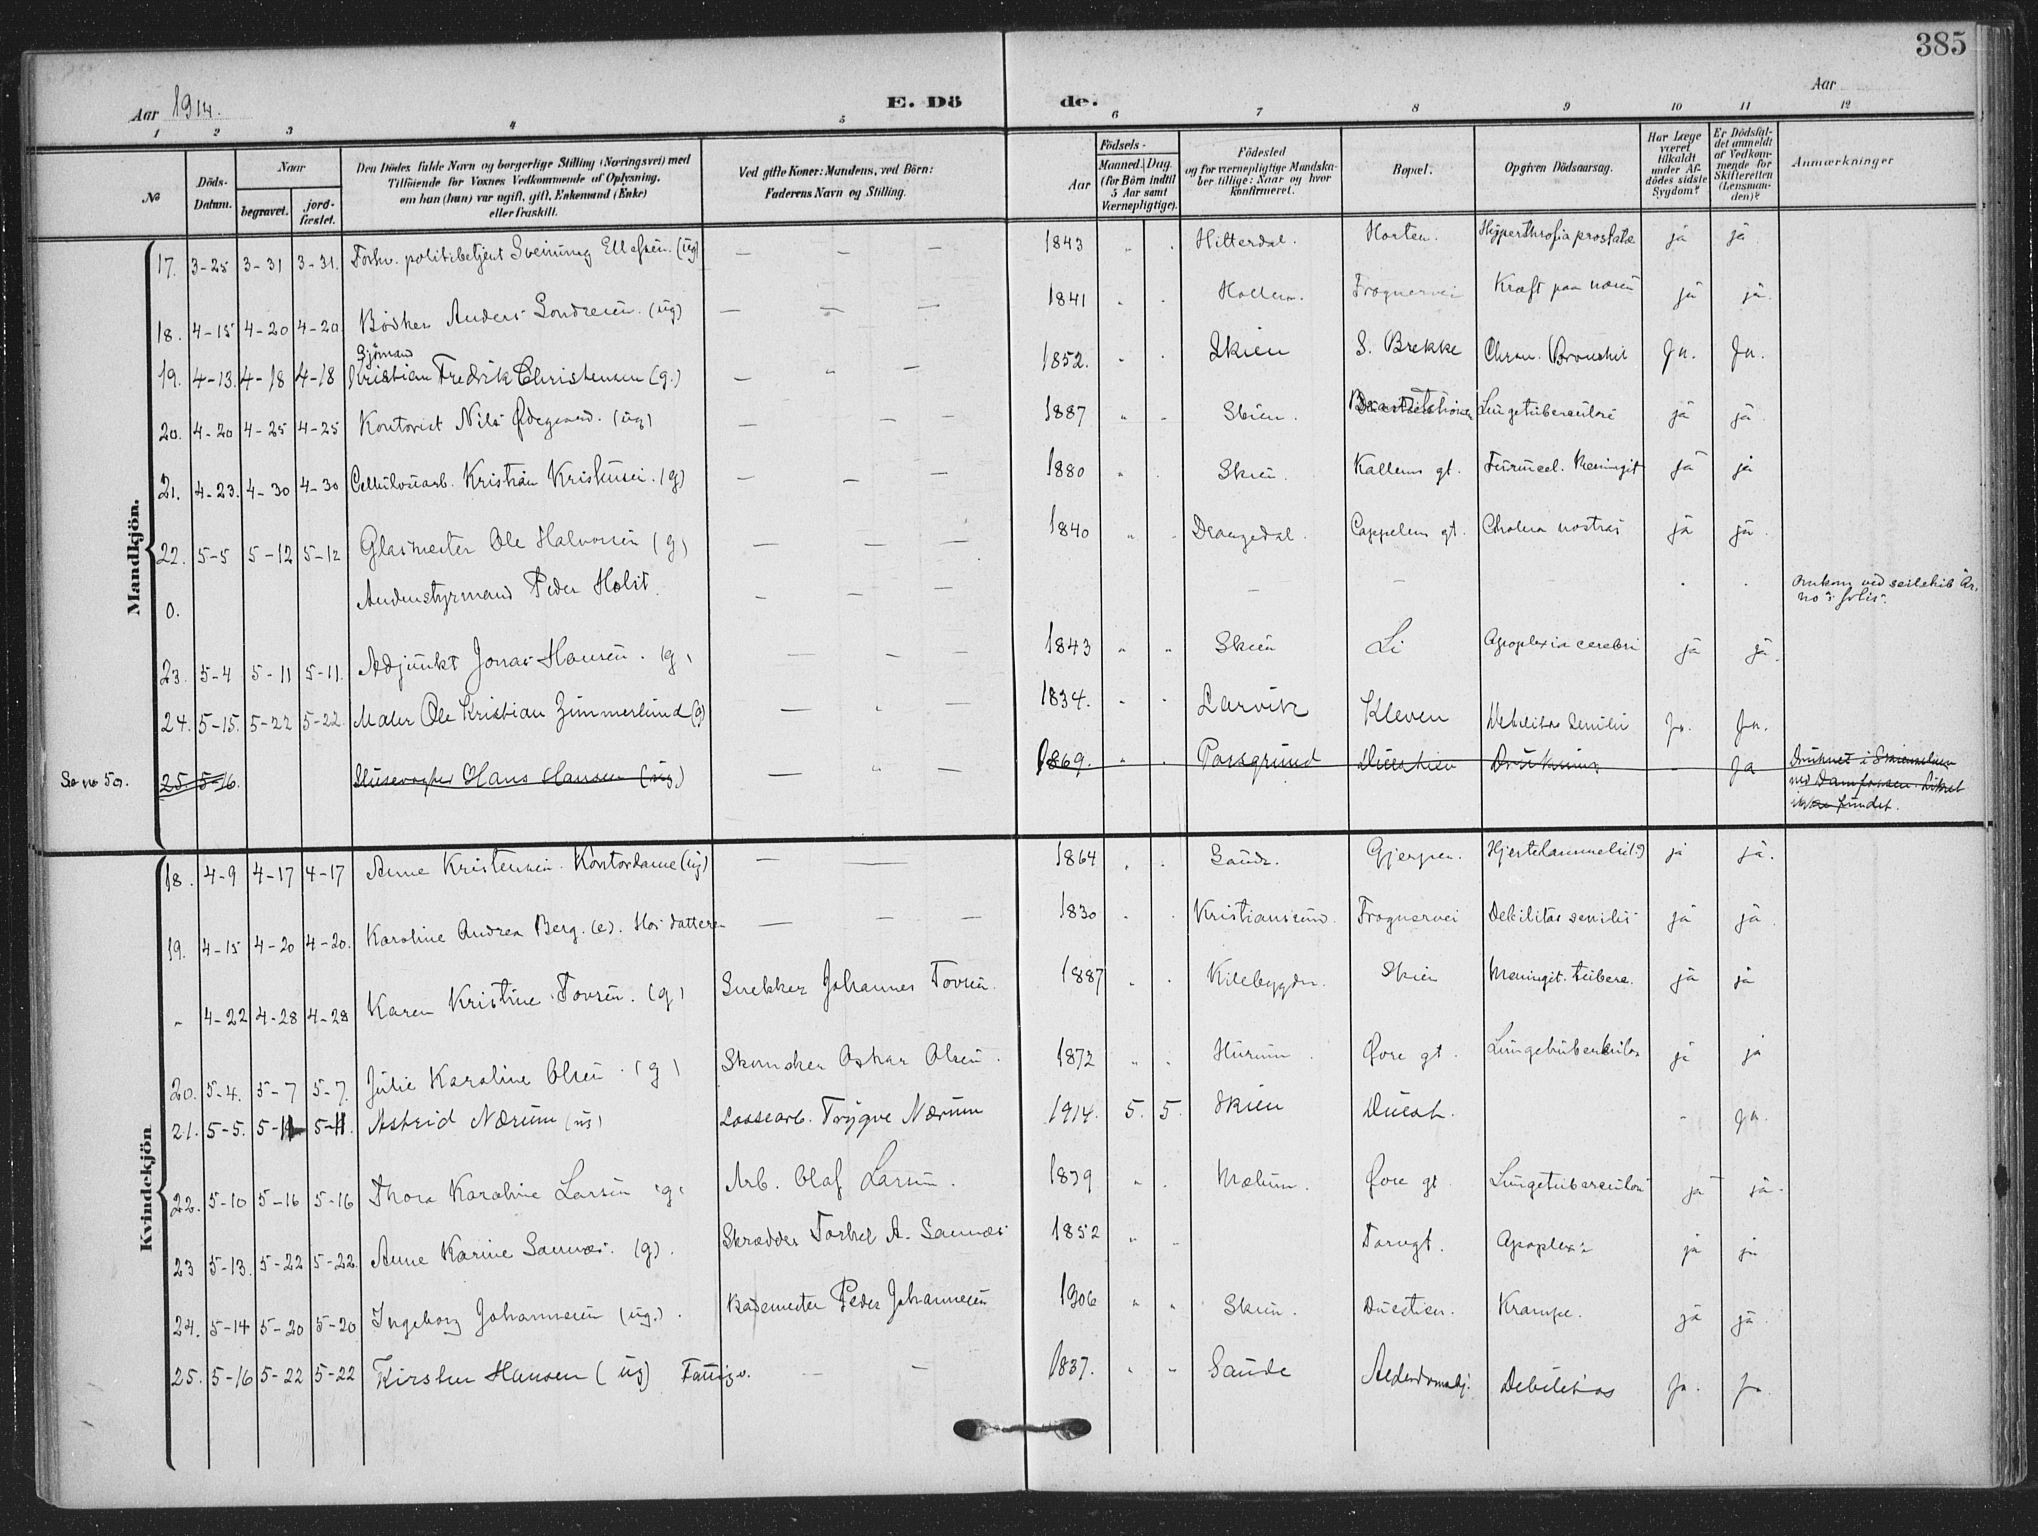 385
Aar 1914.
E. Dö de.
Aar
1 2 3 4 5 6 7 8 9 10 11 12
№
Döds-Datum.
Naar
begravet.
jord-fæstet.
Den Dödes fulde Navn og borgerlige Stilling (Næringsvei) med
Tilföiende for Voxnes Vedkommende af Oplysning,
om han (hun) var ugift, gift, Enkemand (Enke)
eller fraskilt.
Ved gifte Koner: Mandens, ved Börn:
Faderens Navn og Stilling.
Födsels-
Aar
Maaned. Dag.
(for Börn indtil
5 Aar samt
Værnepligtige).
Födested
og for værnepligtige Mandska-
ber tillige: Naar og hvor
konfirmeret.
Bopæl.
Opgiven Dödsaarsag.
Har Læge
været
tilkaldt
under Af-
dödes sidste
Sygdom?
Er Dödsfal-
det anmeldt
af Vedkom-
mende for
Skifteretten
(Lensman-
den)?
Anmærkninger
Mandkjön.
17. 3-25 3-31 3-31. Forhv. politibetjent Sveinung Ellefsen. (ug) — — — 1843 Hitterdal. Horten. Hyperthrofia prostatæ ja ja
18. 4-15 4-20 4-20 Bödker Anders Sondresen. (ug) — — — 1841 Holla. Frognervei Kræft paa næsen ja ja.
19. 4-13. 4-18 4-18 Sjömand Kristian Fredrik Christensen (g.) — — 1852. Skien S. Brekke Chron. Bronchit Ja. Ja.
20. 4-20 4-25 4-25 Kontorist Nils Ødegaard. (ug) — — — 1887 Skien. Lungetuberculose ja ja.
21. 4-23. 4-30 4-30 Cellulosearb. Kristian Kristensen. (g) — — — 1880 Skien. Kallems gt. Meningit ja ja
22. 5-5 5-12 5-12 Glasmester Ole Halvorsen (g) — — — 1840 Drangedal. Cappelens gt. Cholera nostras ja ja.
0. Andenstyrmand Peder Holst. — — — — — Omkom ved seilskib "Ar-
no's forlis".
23. 5-4 5-11 5-11. Adjunkt Jonas Hansen. (g) — — — 1843 Skien Li Apoplexia cerebri ja ja.
24. 5-15. 5-22 5-22. Maler Ole Kristian Zimmerlund (g) — — 1834. Larvik Kleven Debilitas senilis Ja. Ja.
Se no 50. 25. 5-16. Hans Hansen (ug.) — — 1869. Porsgrund Duestien Drukning — Ja Druknet i Skienselven
ved Damfossen. Liket
ikke fundet.
Kvindekjön
18. 4-9 4-17 4-17 Anne Kristensen. Kontordame (ug) — — 1864 Saude. Gjerpen. ja ja.
19. 4-15 4-20 4-20. Karoline Andrea Berg. (e). Hos datteren — — — 1830 Kristiansund. Frognervei Debilitas senilis ja ja.
" 4-22 4-28 4-28 Karen Kristine Tovsen. (g) Snekker Johannes Tovsen. 1887 Kilebygden. Skien Meningit. tuberc. ja ja
20. 5-4. 5-7 5-7. Julie Karoline Olsen. (g) Skomaker Oskar Olsen. 1872 Hurum. Øvre gt. Lungetuberkulos ja ja
21. 5-5. 5-11 5-11. Astrid Nærum (ug) Lossearb. Trygve Nærum 1914. 5. 5. Skien Duest. - Ja.
22. 5-10 5-16 5-16 Thora Karoline Larsen (g) Arb. Olaf Larsen. 1839 Mælum. Øvre gt. Lungetuberculose ja ja.
23 5-13. 5-22 5-22. Anne Karine Sannæs. (g). Skrædder Torkel A. Sannæs 1852 Torvgt. Apoplexi ja ja
24. 5-14 5-20 5-20 Ingeborg Johannesen (ug.). Bademester Peder Johannesen 1906 Skien. Duestien. Krampe. ja ja.
25. 5-16 5-22 5-22 Kirsten Hansen (ug) Fattigv. — — 1837. Saude Aelderdomshj. Debilitas Ja. Ja.